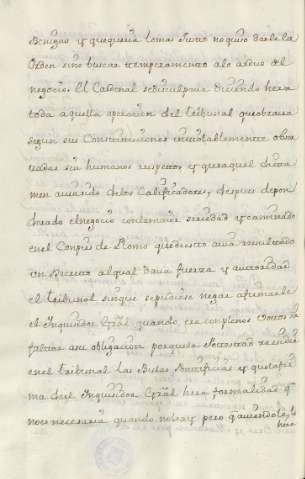 Benigno y que queria tomar Junto no quiso darle la
Orden sino buscar temperamento a lo arduo del
negocio. El Cardenal se disculpava diciendo hera
toda aquella operacion del tribunal que obrava
segun sus Constituciones inviolablemente obser
vadas sin humanos respectos, y que aquel dicta
men aviendo de los Calificadores, despues de pon
derado el negocio con tanta seriedad y caminado
en el Congreso de Roma que de esto avia resultado
un Decreto al qual dava fuerza y autoridad
el tribunal sin que se pudiese negar a firmarle
el Inquisidor Gral quando con complenos votos sin
faltar a su obligacion porque la Potestad reside
en el tribunal las Bulas Pontificias y que la fir
ma del Inquisidor Gral hera formalidad q.
no es necesaria quando no la ay pero q. aviendola, la
hera